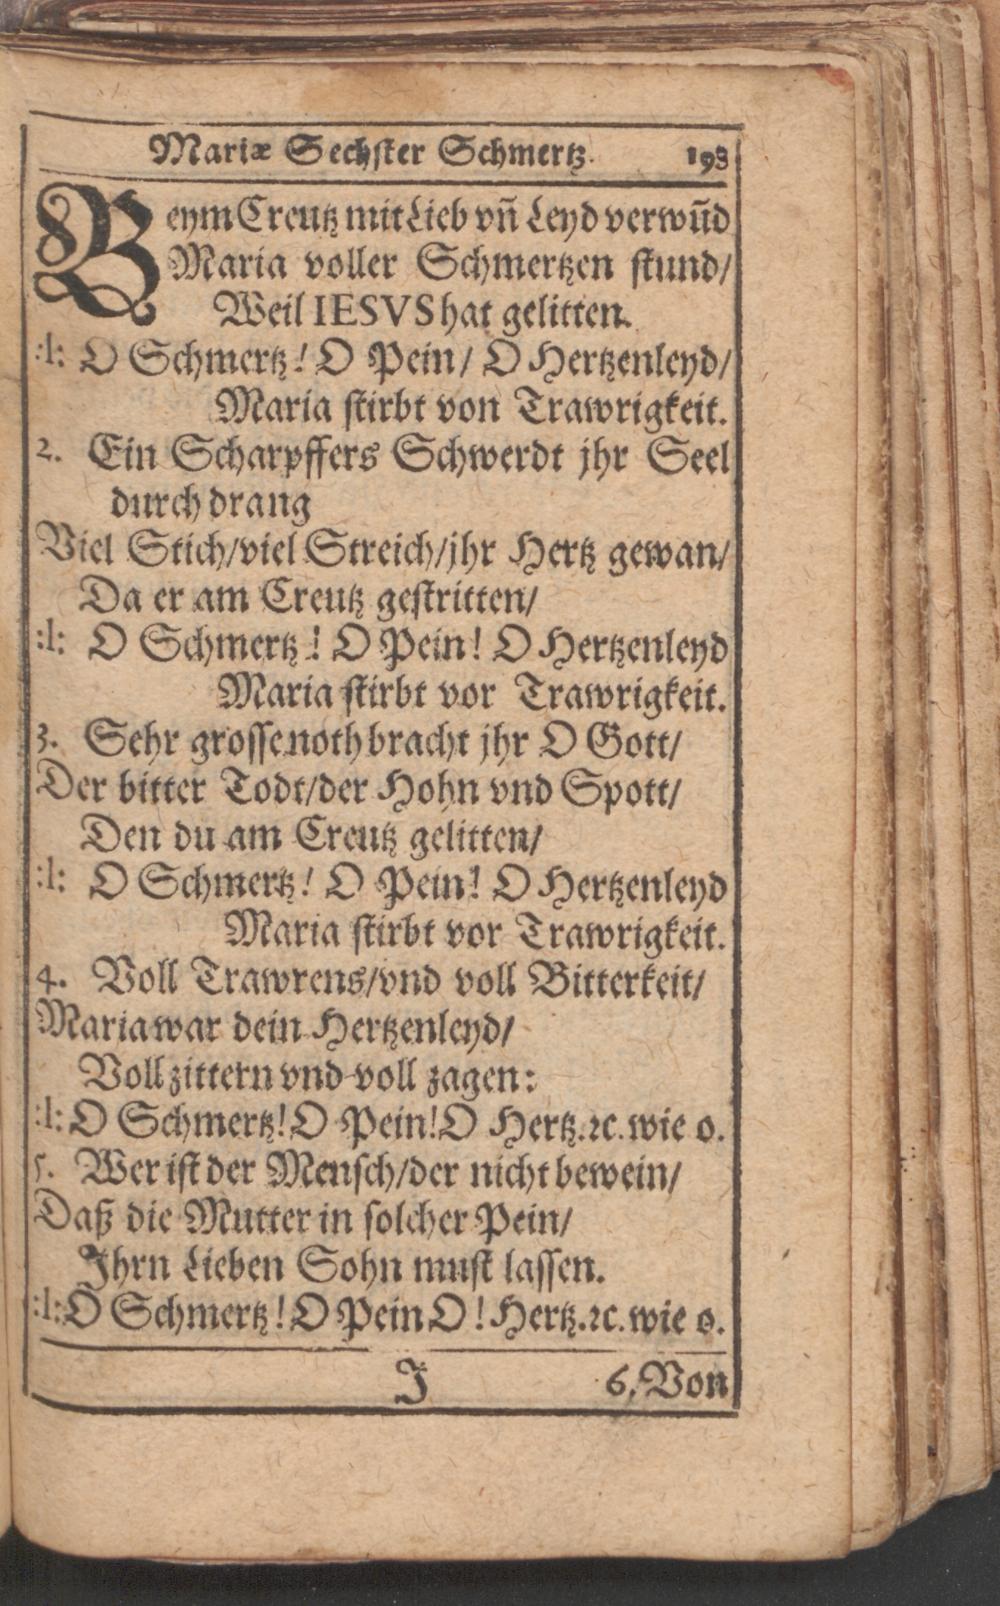 Mariæ Sechster Schmertz. 193
Beym Creutz mit Lieb vñ Leyd verwūd
Maria voller Schmertzen stund/
Weil IESVS hat gelitten.
:l: O Schmertz! O Pein/ O Hertzenleyd/
Maria stirbt von Trawrigkeit.
2. Ein Scharpffers Schwerdt jhr Seel
durch drang
Viel Stich/viel Streich/jhr Hertz gewan/
Da er am Creutz gestritten/
:l: O Schmertz! O Pein! O Hertzenleyd
Maria stirbt vor Trawrigkeit.
3. Sehr grosse noth bracht jhr O Gott/
Der bitter Todt/der Hohn vnd Spott/
Den du am Creutz gelitten/
:l: O Schmertz! O Pein! O Hertzenleyd
Maria stirbt vor Trawrigkeit.
4. Voll Trawrens/vnd voll Bitterkeit/
Maria war dein Hertzenleyd/
Voll zittern vnd voll zagen:
:l: O Schmertz! O Pein! O Hertz.ꝛc. wie o.
5. Wer ist der Mensch/der nicht bewein/
Daß die Mutter in solcher Pein/
Jhrn Lieben Sohn must lassen.
:l: O Schmertz! O Pein O! Hertz.ꝛc. wie o.
J 6. Von